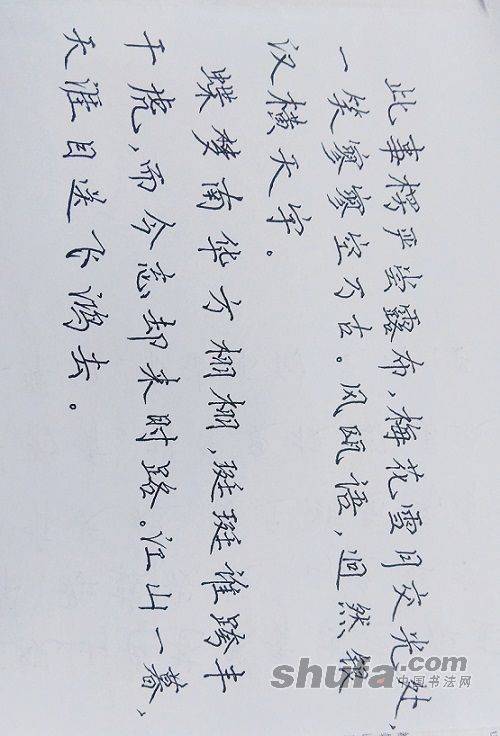 此事楞严尝露布,梅花雪月交光处,
一笑寥寥空万古。风瓯语,迥然银
汉横天宇。
蝶梦南华方栩栩,珽珽谁跨丰
干虎,而今忘却来时路。江山一暮,
天涯目送飞鸿去。
shufa.com
中国书法网